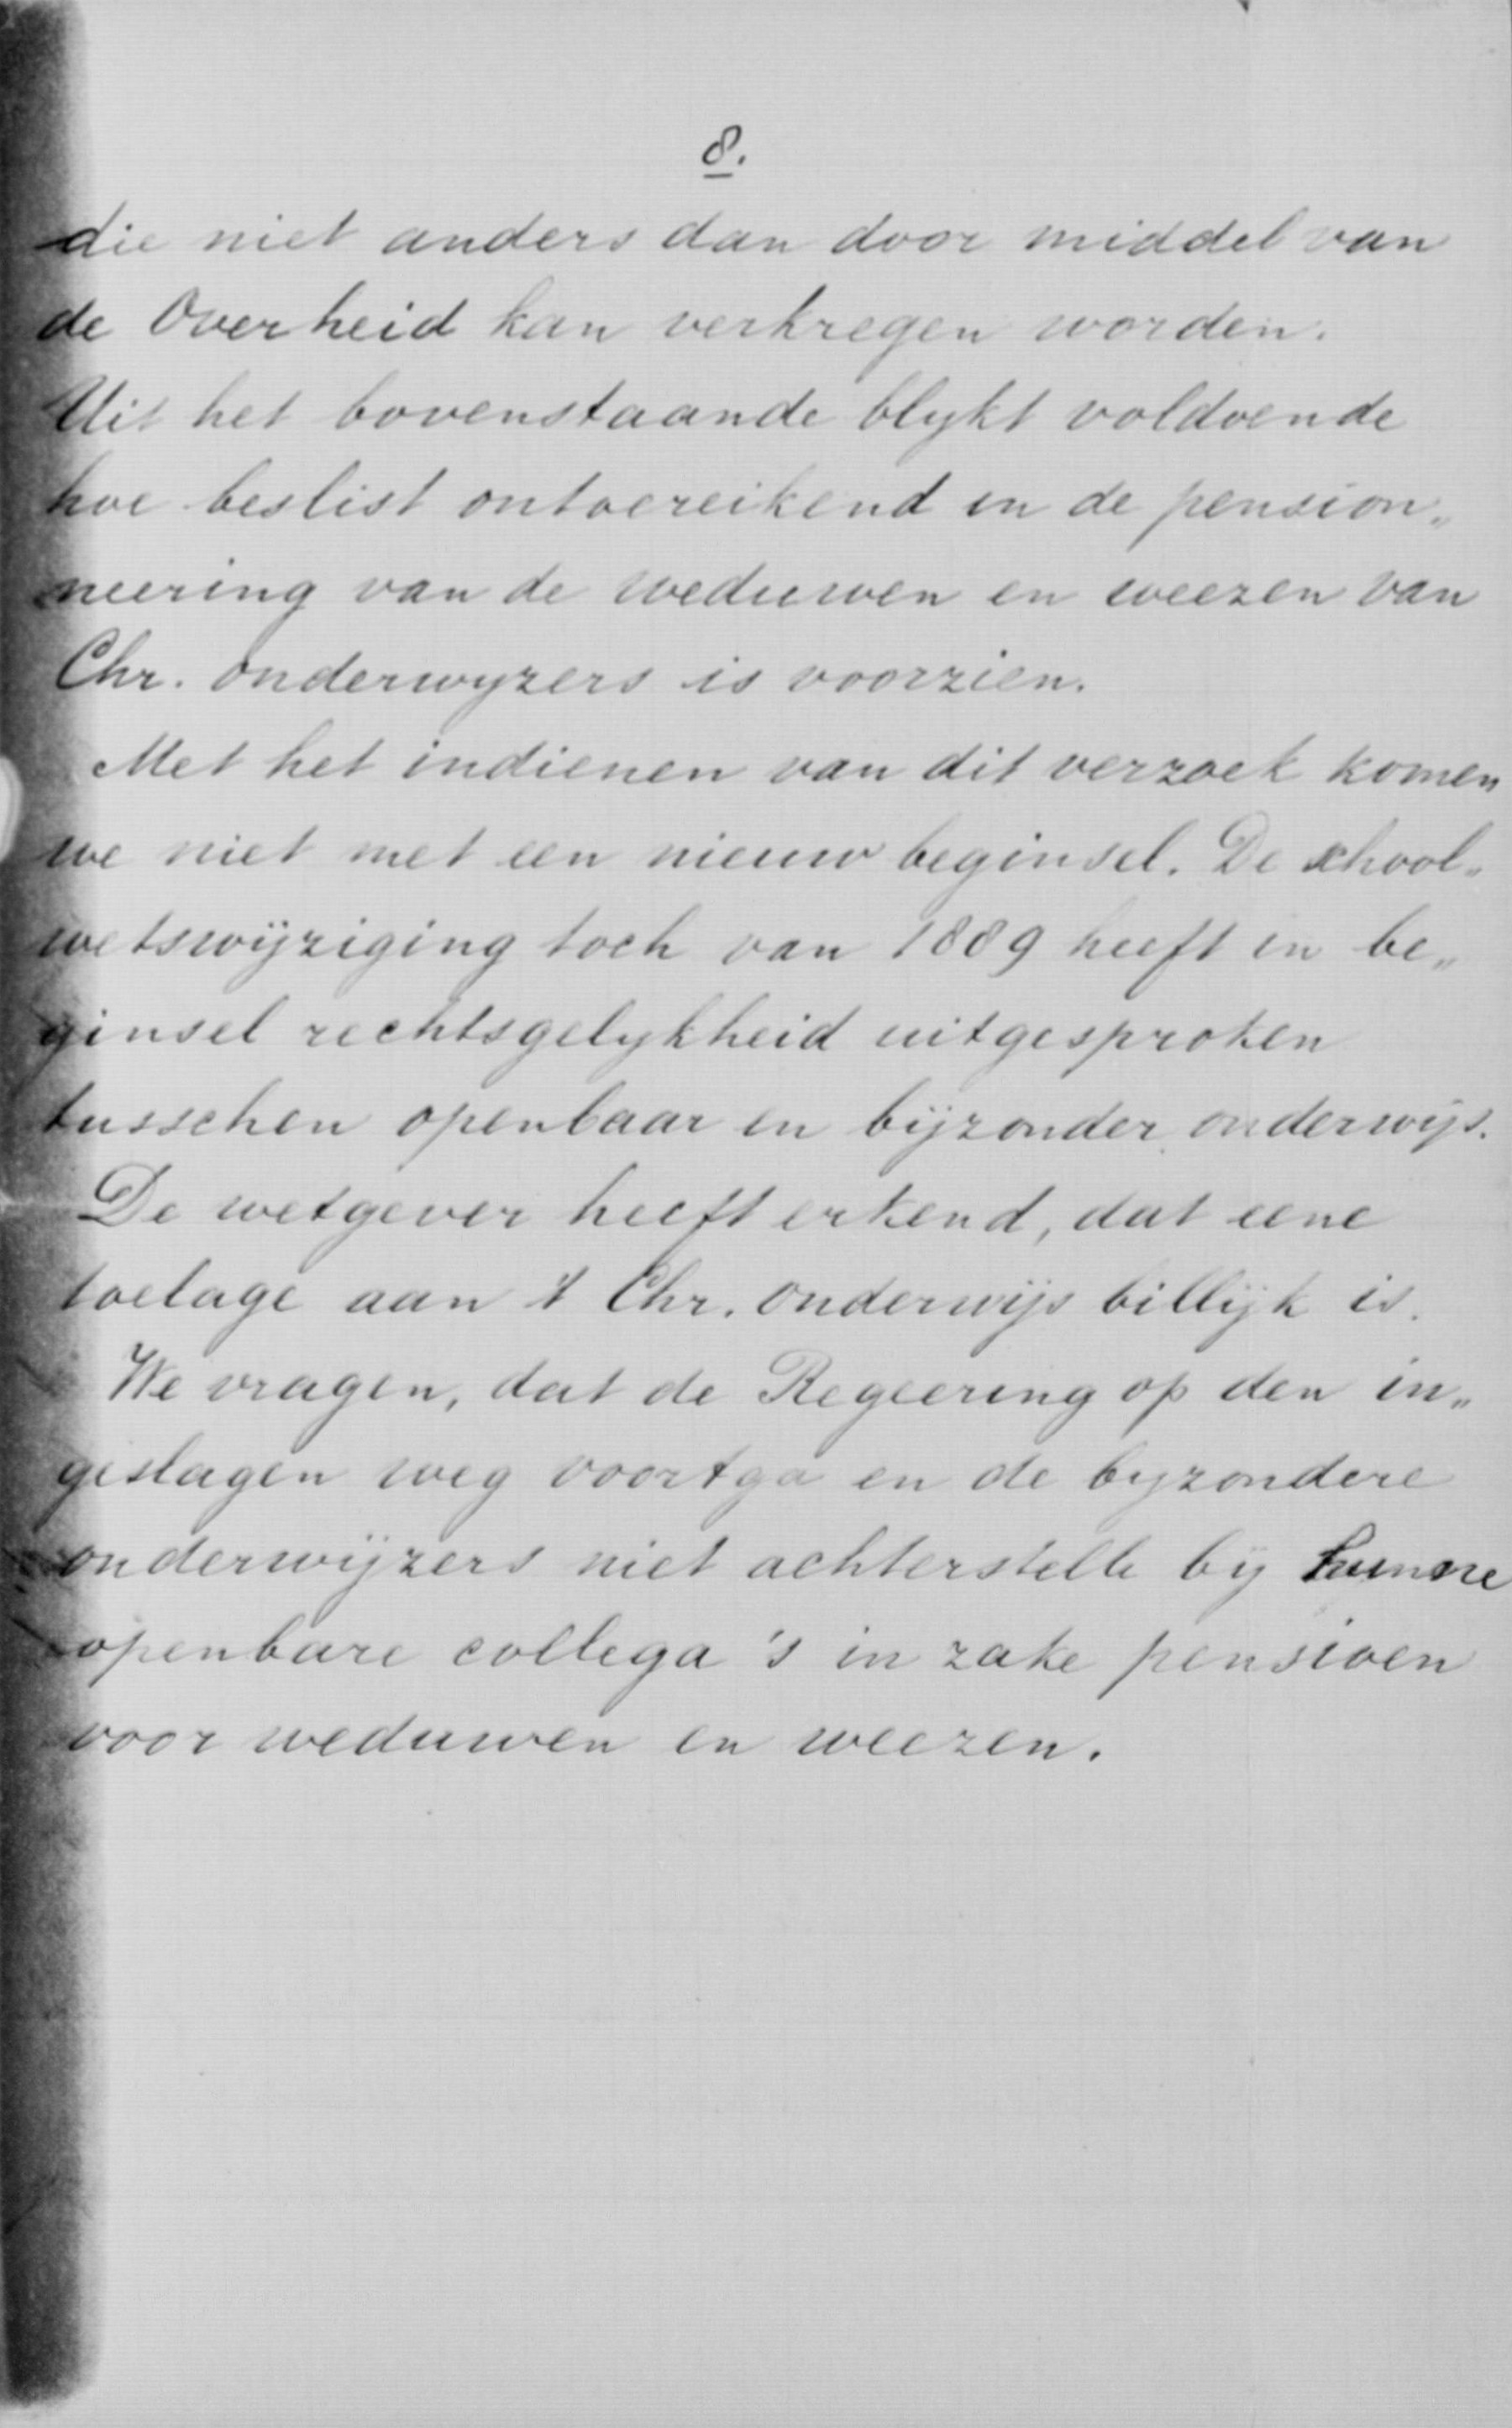 8.
die niet anders dan door middel van
de Overheid kan verkregen worden.
Uit het bovenstaande blykt voldoende
hoe beslist ontoereikend in de pension„
neering van de weduwen en weezen van
Chr. onderwyzers is voorzien.
Met het indienen van dit verzoek komen
we niet met een nieuw beginsel. De school„
wetswijziging toch van 1889 heeft in be„
ginsel rechtsgelykheid uitgesproken
tusschen openbaar en bijzonder onderwijs.
De wetgever heeft erkend, dat eene
toelage aan 't Chr. onderwijs billijk is.
We vragen, dat de Regeering op den in„
geslagen weg voortga en de byzondere
onderwijzers niet achterstelle bij hunne
openbare collega's in zake pensioen
voor weduwen en weezen.